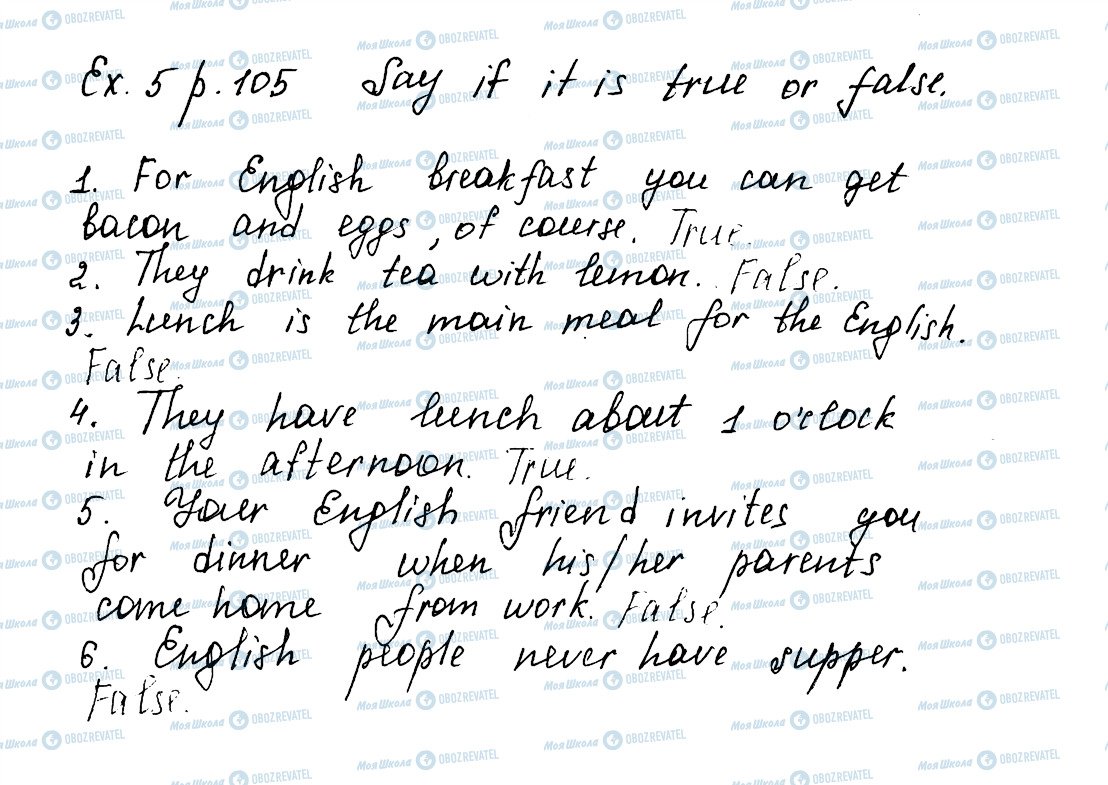 Ex. 5 p. 105 Say if it is true or false.
1. For English breakfast you can get
bacon and eggs, of course. True.
2. They drink tea with lemon. False.
3. Lunch is the main meal for the English.
False.
4. They have lunch about 1 o'clock
in the afternoon. True.
5. Your English friend invites you
for dinner when his/her parents
come home from work. False.
6. English people never have supper.
False.